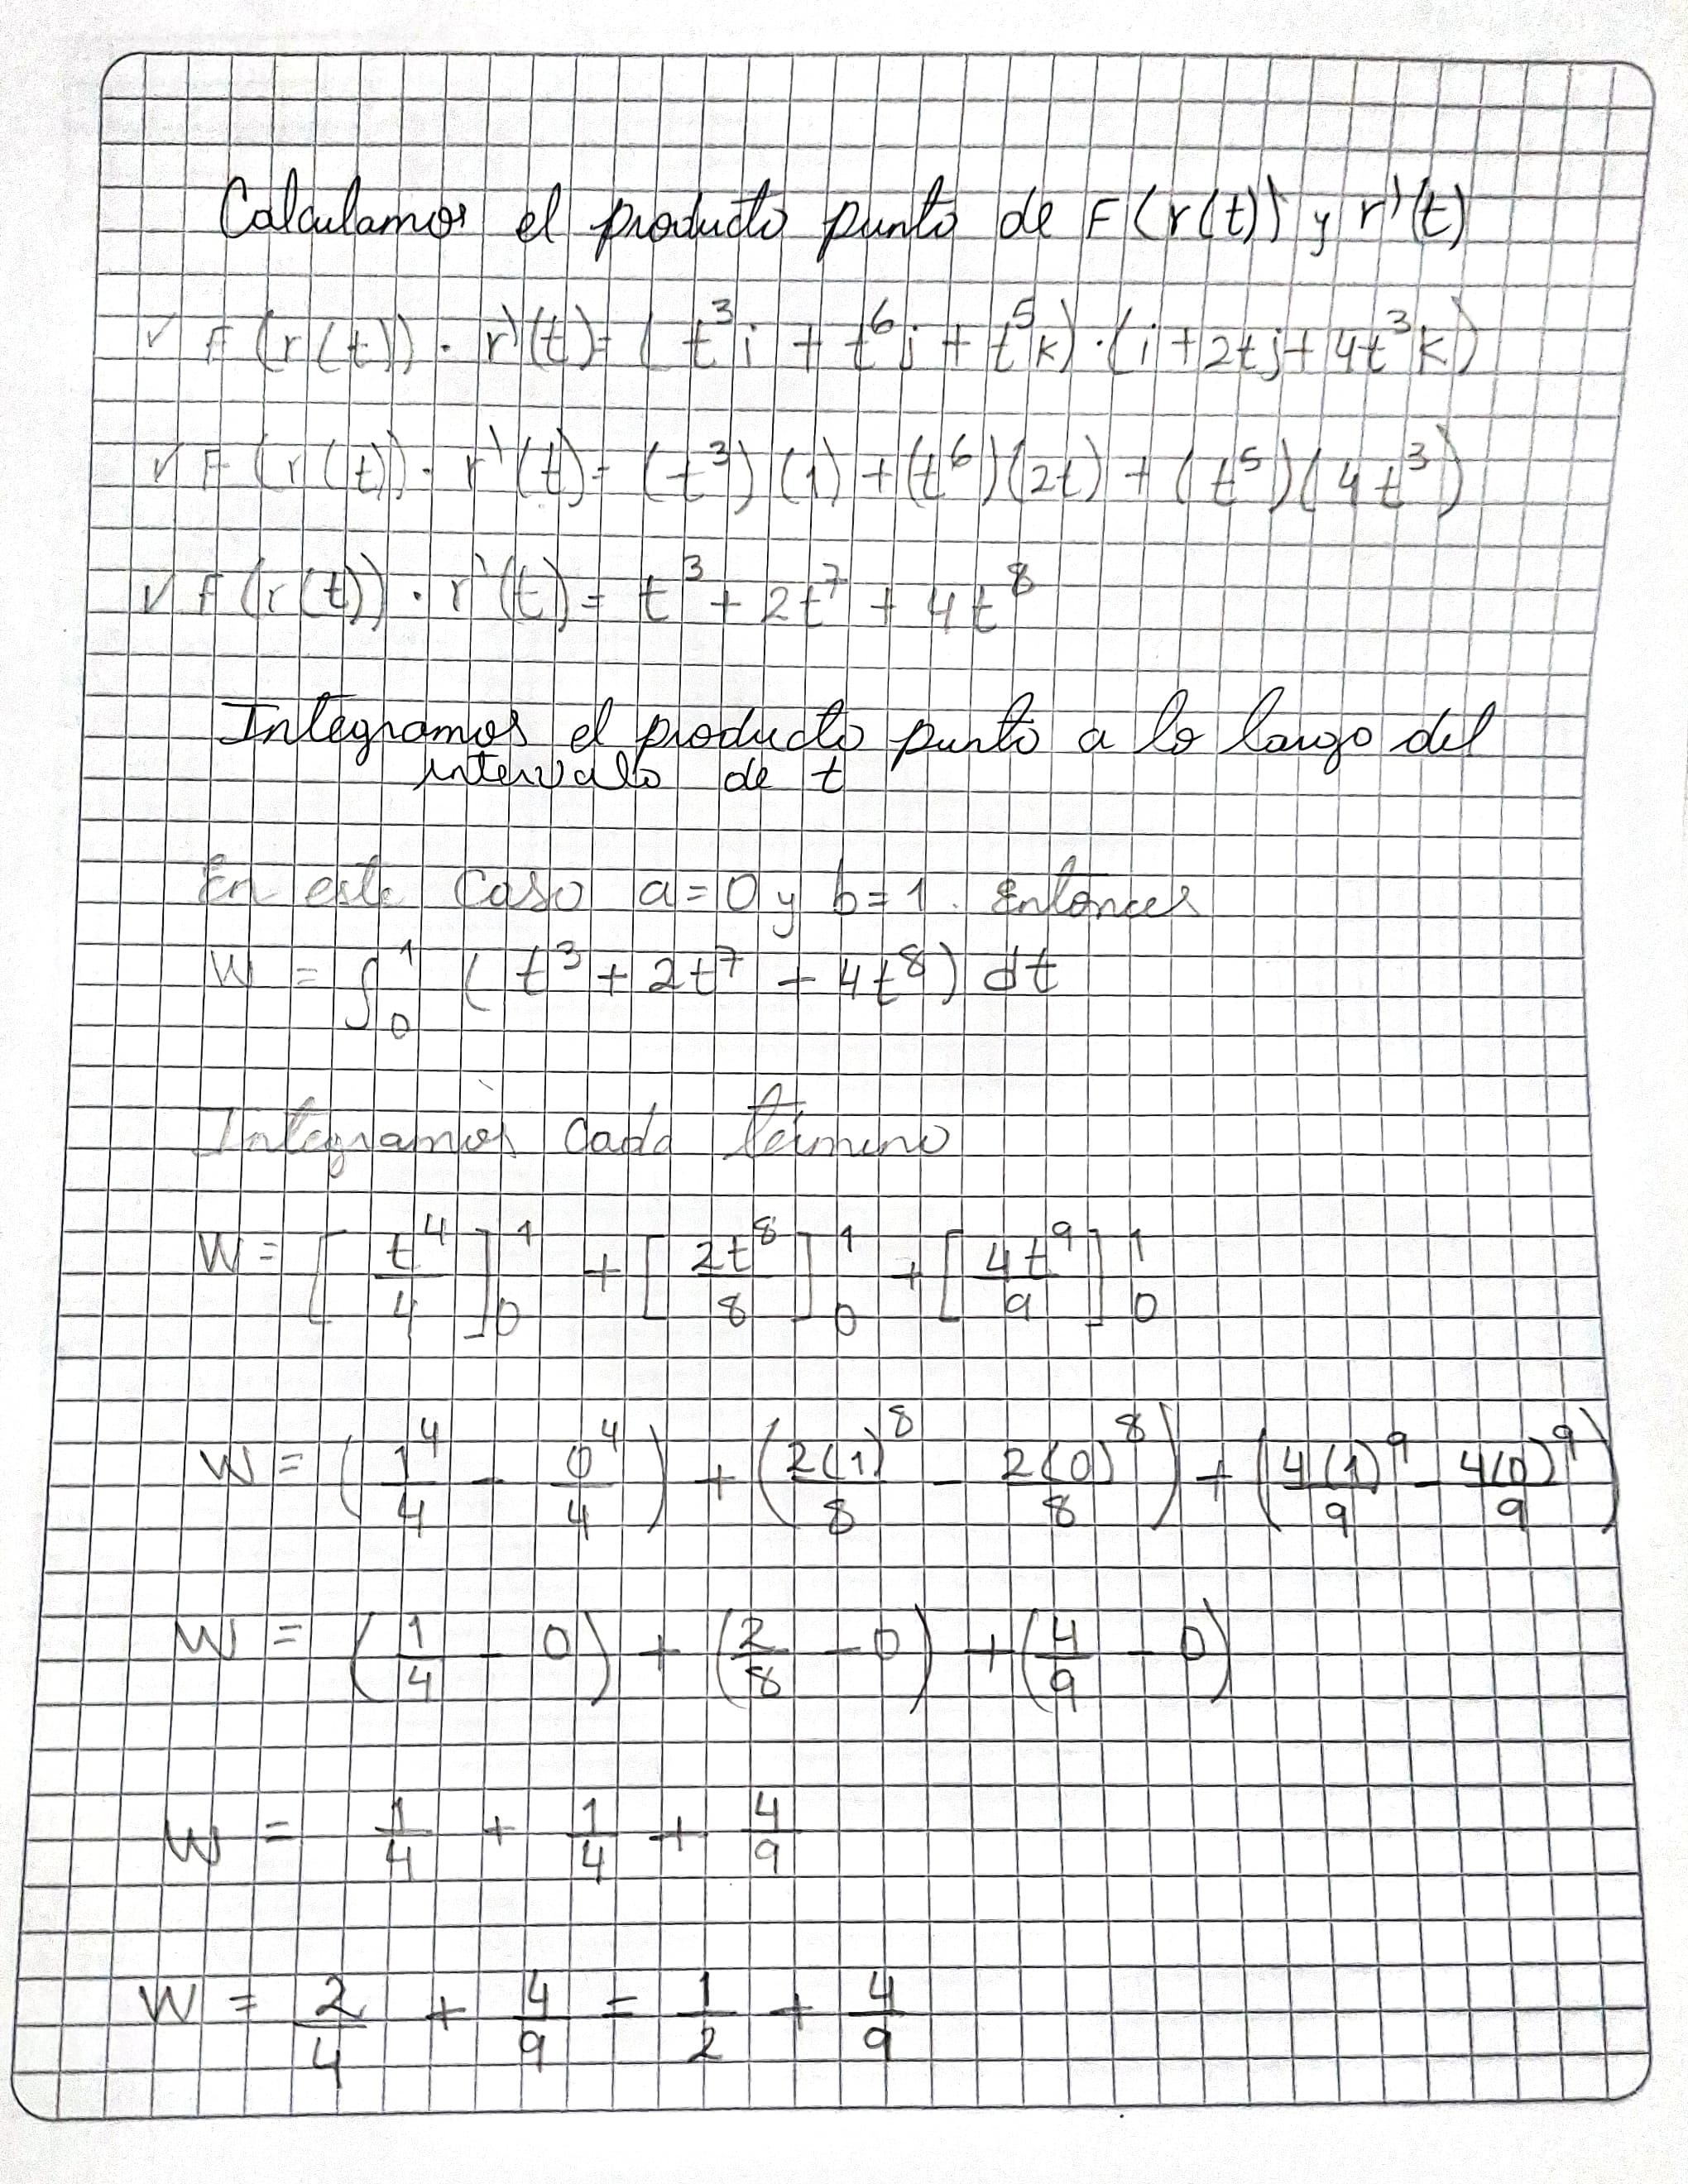 Calculamos el producto punto de F(r(t)) y r'(t)
✓ F(r(t)) · r'(t) = (t³i + t⁶j + t⁵k) · (i + 2tj + 4t³k)
✓ F(r(t)) · r'(t) = (t³)(1) + (t⁶)(2t) + (t⁵)(4t³)
✓ F(r(t)) · r'(t) = t³ + 2t⁷ + 4t⁸
Integramos el producto punto a lo largo del
intervalo de t
En este caso a=0 y b=1. Entonces
W = ∫₀¹ (t³ + 2t⁷ + 4t⁸) dt
Integramos cada término
W = [t⁴/4]₀¹ + [2t⁸/8]₀¹ + [4t⁹/9]₀¹
W = (1⁴/4 - 0⁴/4) + (2(1)⁸/8 - 2(0)⁸/8) + (4(1)⁹/9 - 4(0)⁹/9)
W = (1/4 - 0) + (2/8 - 0) + (4/9 - 0)
W = 1/4 + 1/4 + 4/9
W = 2/4 + 4/9 = 1/2 + 4/9